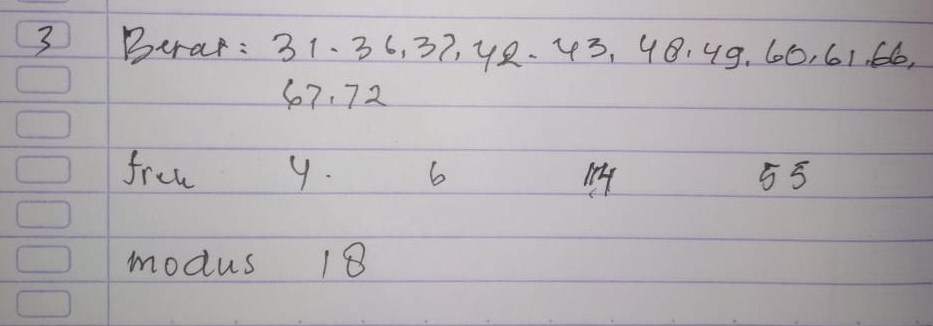 3 Berat: 31-36, 37, 42-43, 48, 49, 60, 61, 66,
67, 72
frek 4. 6 5 5
modus 18